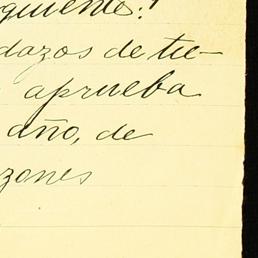 siguiente:
dazos de tie-
aprueba
año, de
zones